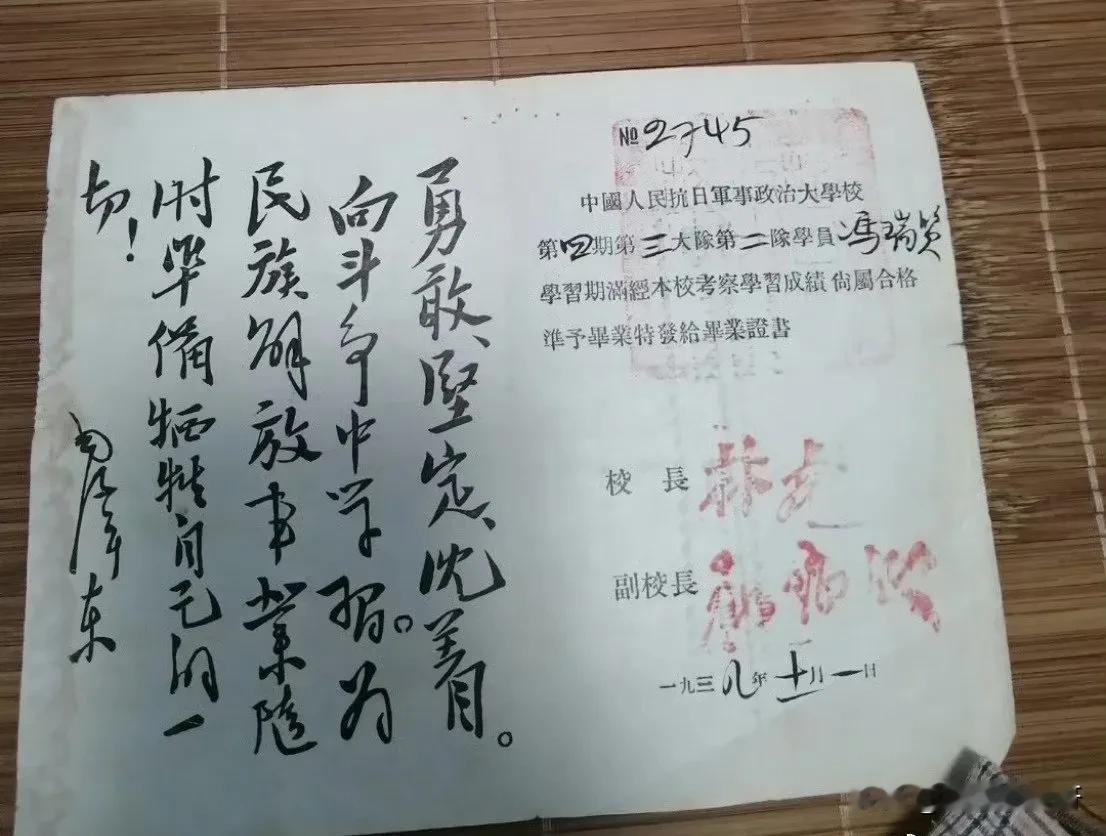 №2745
中國人民抗日軍事政治大學校
第四期第三大隊第二隊學員馮瑞
學習期滿經本校考察學習成績尙屬合格
準予畢業特發給畢業證書
校長 林彪
副校長 羅瑞卿
一九三八年十一月一日
勇敢、堅定、沈着。
向斗爭中学習。为
民族解放事業隨
时準備牺牲自己的一
切！
毛泽东